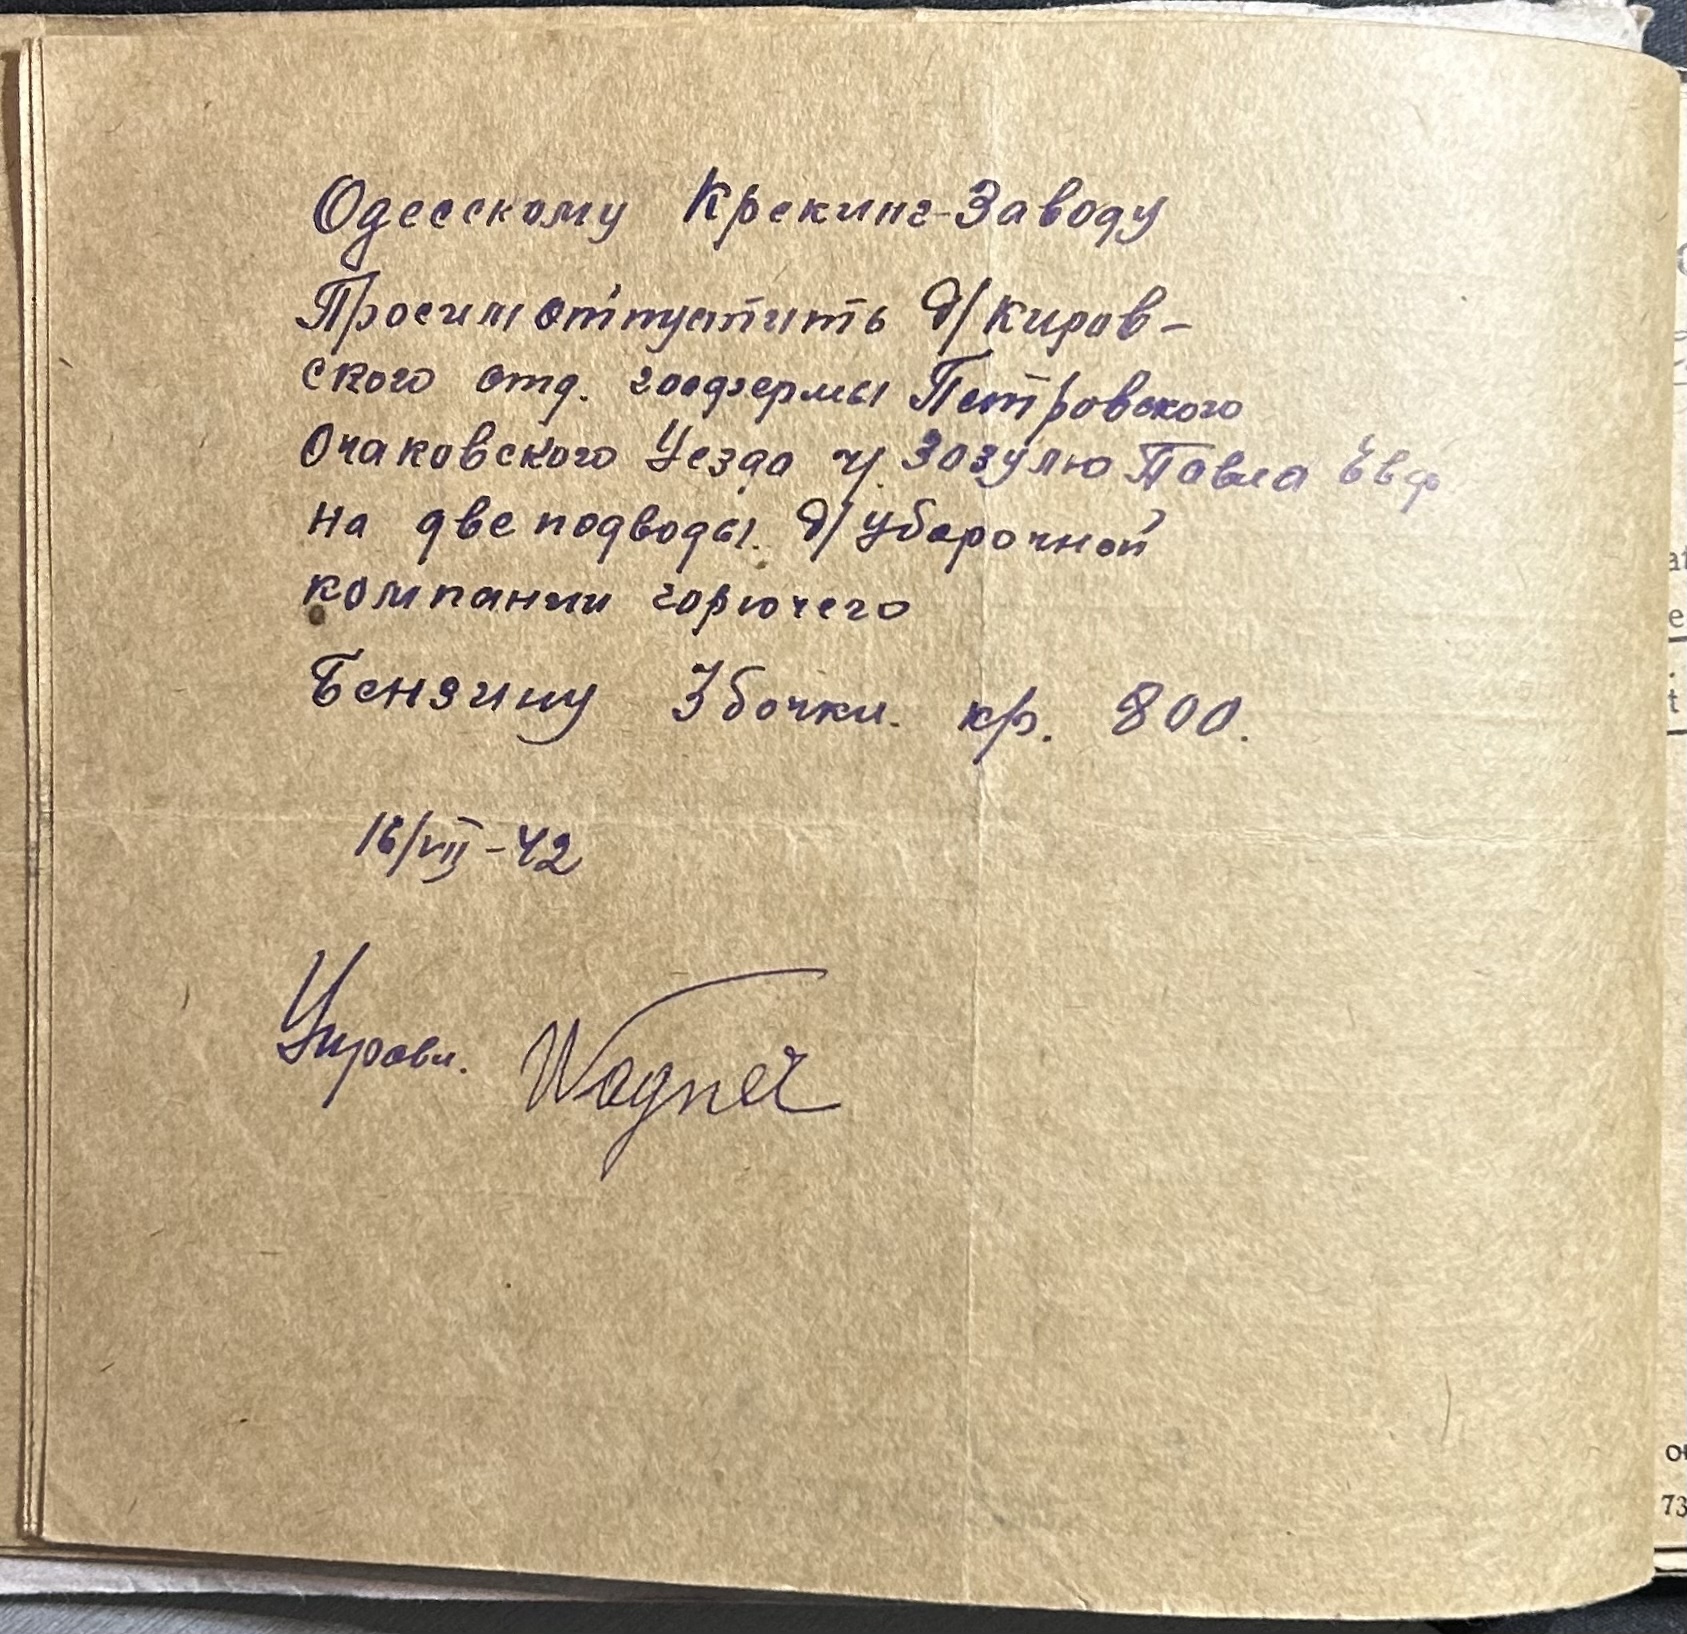 Одесскому Крекинг-Заводу
Просим отпустить д/Киров-
ского отд. госфермы Петровского
Очаковского Уезда ч. Зозулю Павла Евф.
на две подводы. д/уборочной
компании горючего
Бензину 3 бочки. кр. 800.
16/VII-42
Управл. Wagner